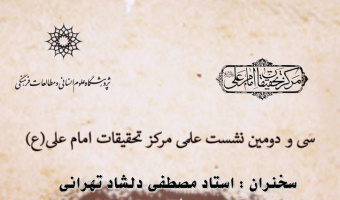 مرکز تحقیقات امام علی
پژوهشگاه علوم انسانی و مطالعات فرهنگی
سی و دومین نشست علمی مرکز تحقیقات امام علی(ع)
سخنران : استاد مصطفی دلشاد تهرانی